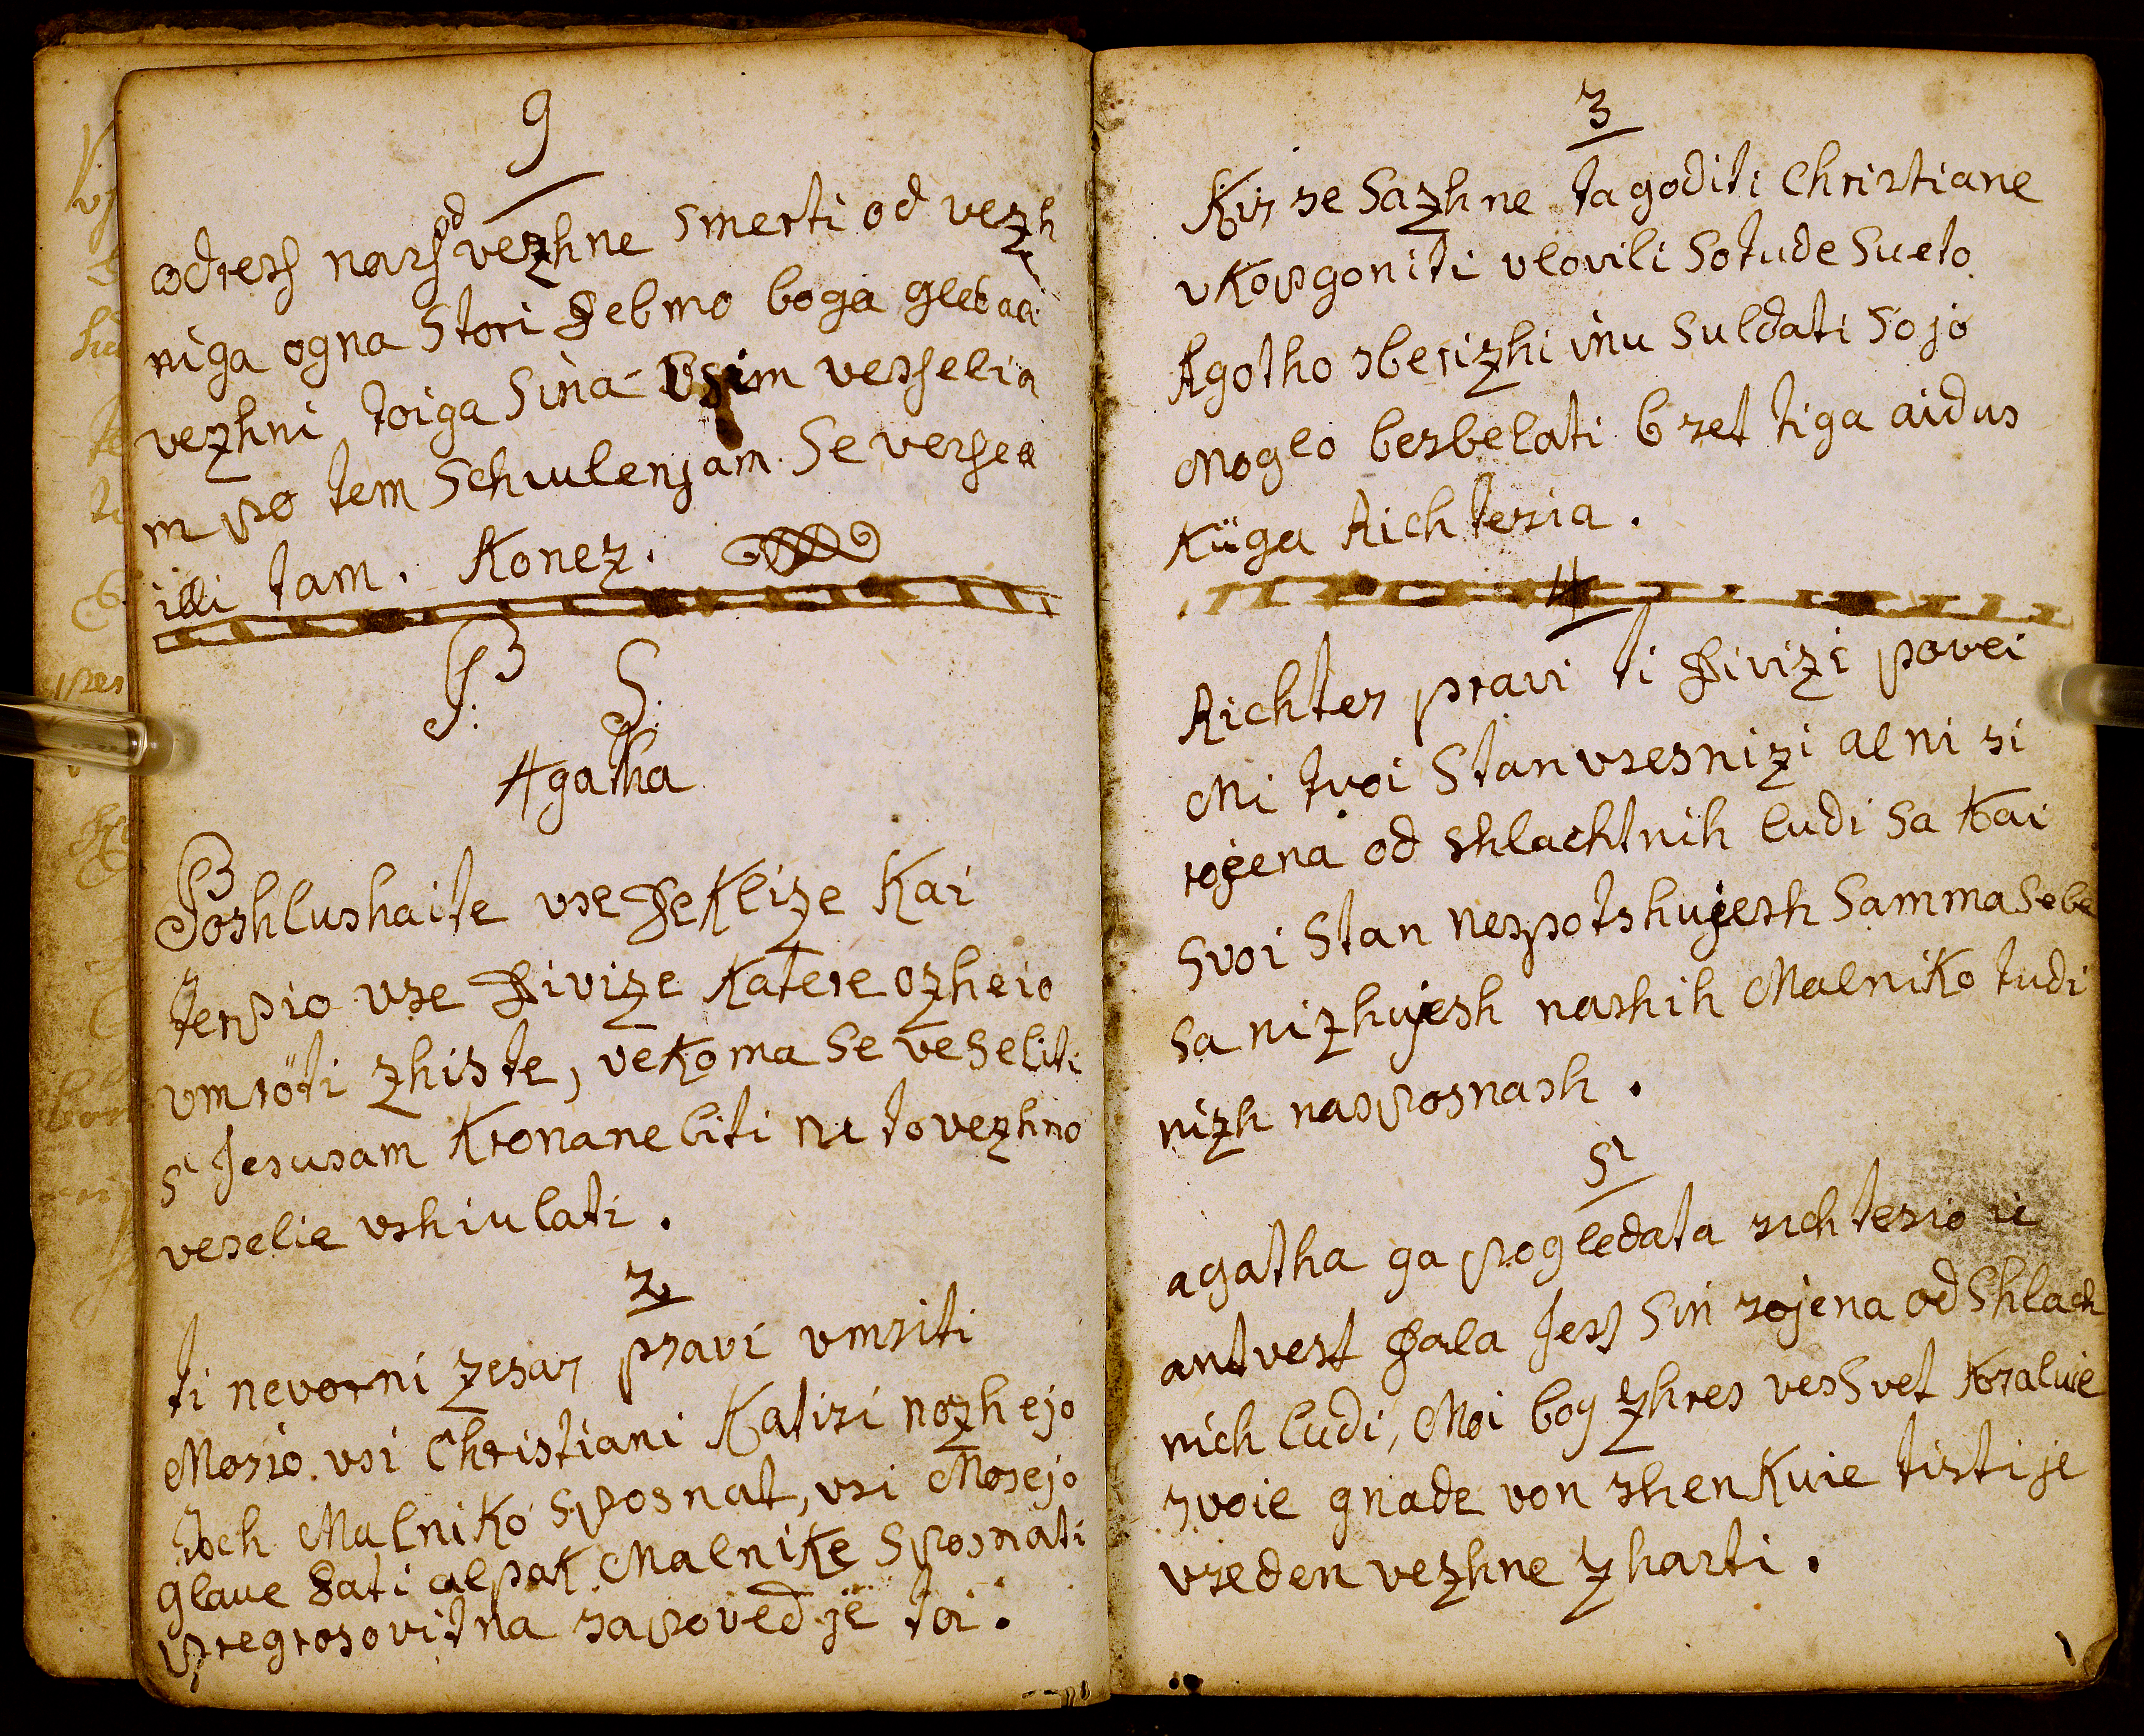 9
odresh nass od vezhne smerti od vezh
niga ogna stori debmo boga gledali
vezhni toiga sina usim vesselia
m po tem schiulenjam se vessel
illi tam. Konez.
P: S:
Agatha
Poshlushaite vse deklize kai
terpio vse divize katere ozheio
vmröti zhiste, vekoma se veseliti
s Jesusam kronane biti no to vezhno
veselie vshiulati.
2
ti neverni zesar pravi vmriti
Morio vsi Christiani katiri nozhejo
Malniko sposnat, vsi Morejo
glave dati alpak Malnike sposnati
pregrosovitna sapoved je toi.
3
Kir se sazhne ta goditi Christiane
vkopgoniti vlovili so tude sueto
Agotho sberizhi inu suldati so jo
moglo besbelati bret tiga aidus
küga Richteria.
4
Richter pravi ti divizi povei
Mi tvoi stan vresnizi al ni si
rojena od shlachtnih ludi sa kai
svoi stan nespotshujesh samma sebe
sa nizhujesh nashih Malniko tudi
nizh nasposnash.
5
agatha ga pogledata richterio ie
antvert dala Jess sin rojena od shlach
nich ludi, Moi bog zhres ves svet kraluie
svoie gnade von shenkuie tisti je
vreden vezhne zharti.